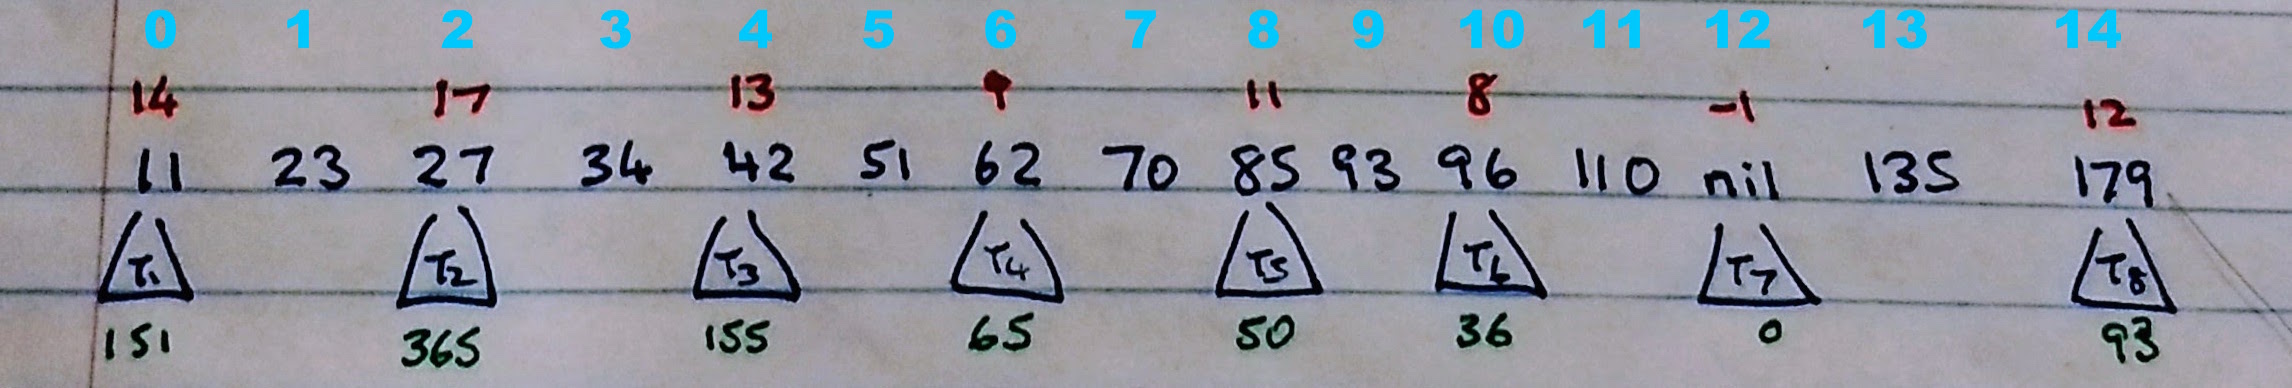 0 1 2 3 4 5 6 7 8 9 10 11 12 13 14
14 17 13 9 11 8 -1 12
11 23 27 34 42 51 62 70 85 93 96 110 nil 135 179
T1 T2 T3 T4 T5 T6 T7 T8
151 365 155 65 50 36 0 93